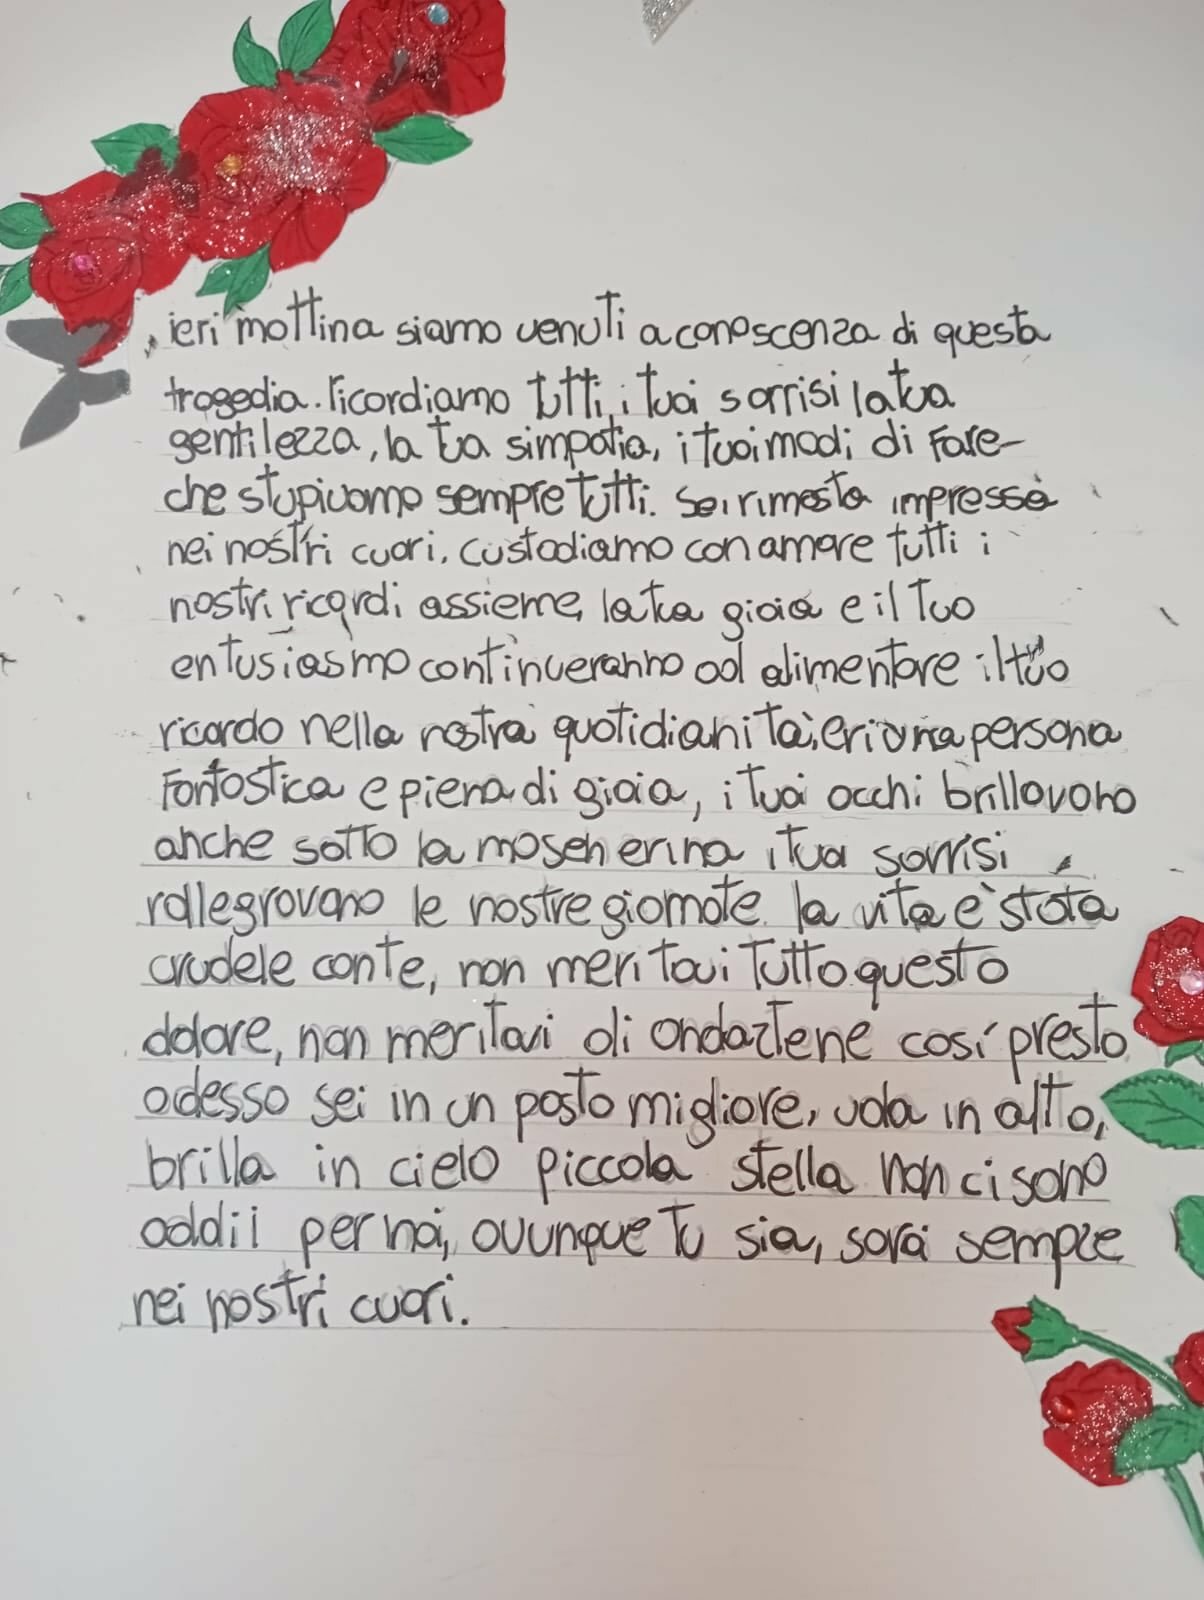 ieri mattina siamo venuti a conoscenza di questa
tragedia. ricordiamo tutti i tuoi sorrisi la tua
gentilezza, la tua simpatia, i tuoi modi di fare
che stupivamo sempre tutti. Sei rimasta impressa
nei nostri cuori. custodiamo con amore tutti i
nostri ricordi assieme, la tua gioia e il tuo
entusiasmo continueranno ad alimentare il tuo
ricordo nella nostra quotidianità, eri una persona
Fantastica e piena di gioia, i tuoi occhi brillavano
anche sotto la mascherina i tuoi sorrisi
rallegravano le nostre giornate. la vita è stata
crudele con te, non meritavi tutto questo
dolore, non meritavi di andartene così presto
adesso sei in un posto migliore, vola in alto,
brilla in cielo piccola stella non ci sono
addii per noi, ovunque tu sia, sarai sempre
nei nostri cuori.